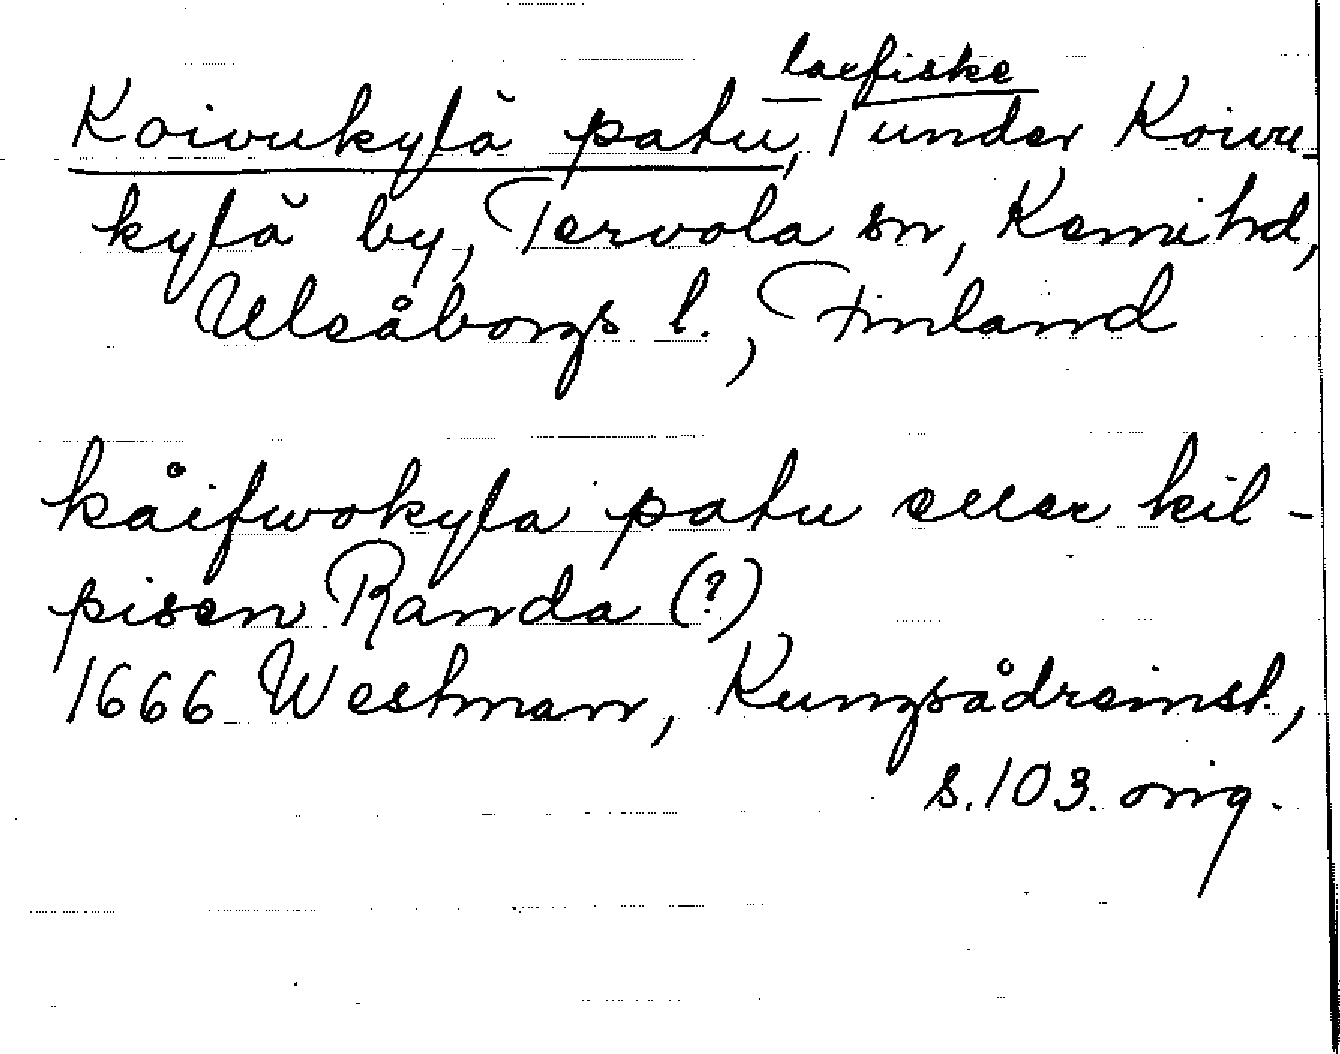 laxfiske
Koivukylä patu, | under Koivu-
kylä by, Tervola sn, Kemi hd,
Uleåborgs l., Finland
kåifwokyla patu eller kil-
pisen Randa (?)
1666 Westman, Kungsådreinst.,
s. 103. orig.